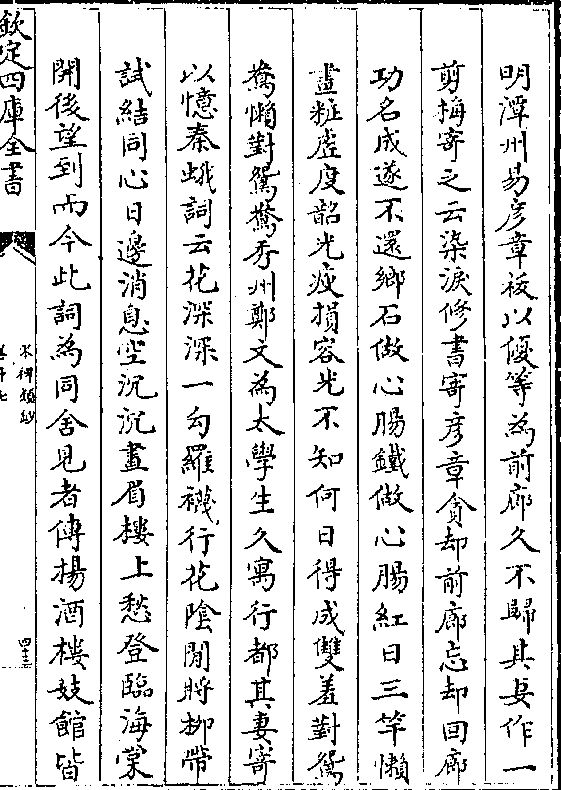 明潭州易彦章祓以優等為前廊久不歸其妻作一
剪梅寄之云染淚修書寄彦章貪却前廊忘却回廊
功名成遂不還鄉石做心腸鐵做心腸紅日三竿懶
畫粧虚度韶光瘦損容光不知何日得成雙羞對鴛
鴦懶對鴛鴦秀州鄭文為太學生久寓行都其妻寄
以憶秦娥詞云花深深一勾羅襪行花陰閒將栁帶
試結同心日邊消息空沉沉畫眉樓上愁登臨海棠
開後望到而今此詞為同舍見者傳揚酒樓妓館皆
欽定四庫全書
宋稗類鈔
卷十七
四十三